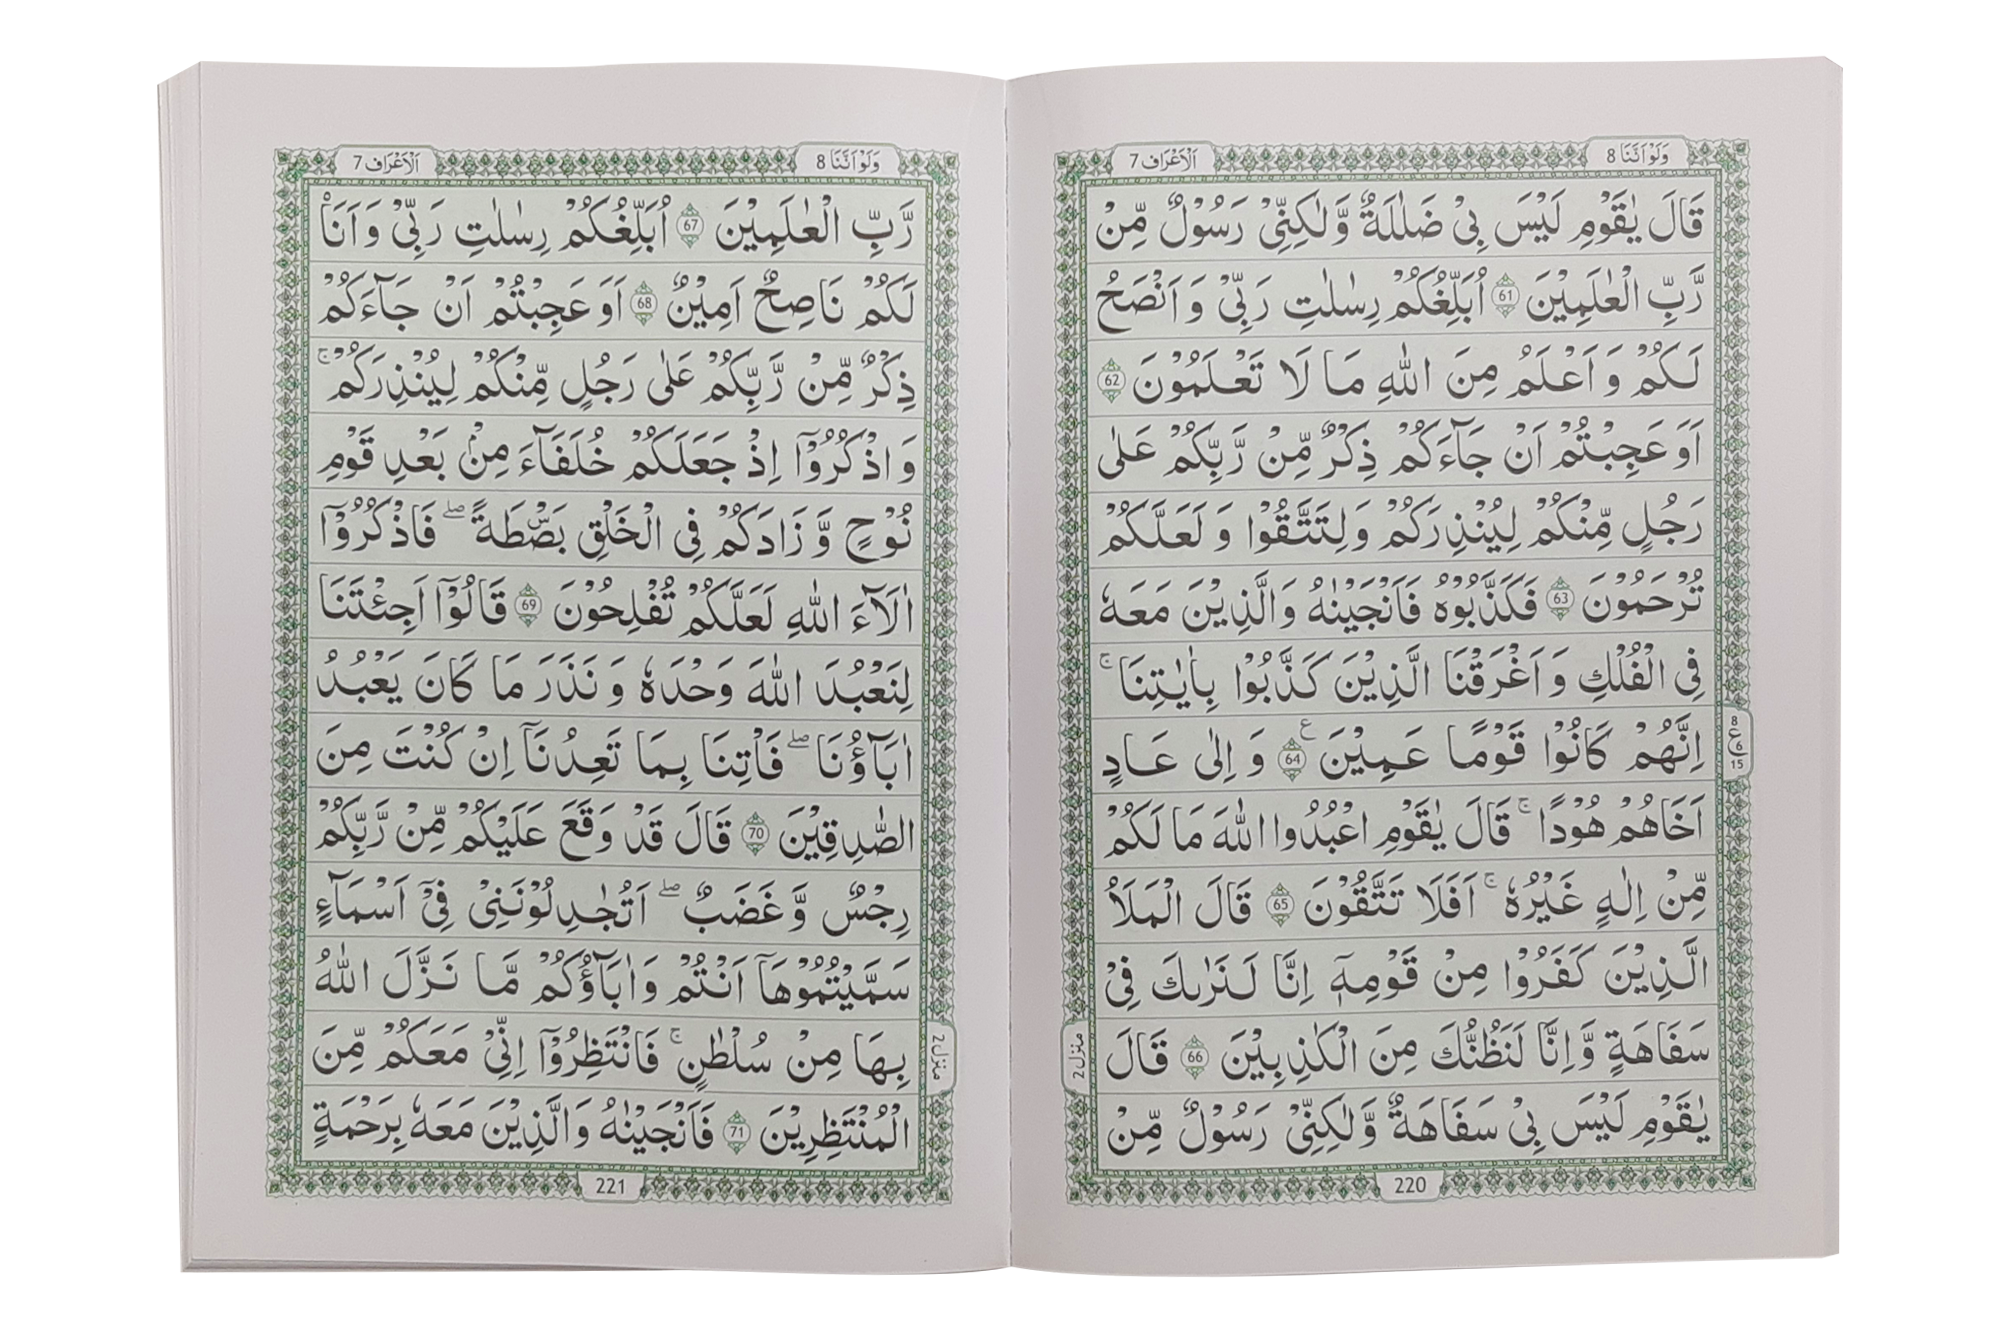 وَلَوْ اَنَّنَا 8
اَلْاَعْرَاف 7
قَالَ يٰقَوْمِ لَيْسَ بِىْ ضَلٰلَةٌ وَّلٰكِنِّىْ رَسُوْلٌ مِّنْ
رَّبِّ الْعٰلَمِيْنَ 61 اُبَلِّغُكُمْ رِسٰلٰتِ رَبِّىْ وَ اَنْصَحُ
لَكُمْ وَ اَعْلَمُ مِنَ اللّٰهِ مَا لَا تَعْلَمُوْنَ 62
اَوَ عَجِبْتُمْ اَنْ جَآءَكُمْ ذِكْرٌ مِّنْ رَّبِّكُمْ عَلٰى
رَجُلٍ مِّنْكُمْ لِيُنْذِرَكُمْ وَلِتَتَّقُوْا وَ لَعَلَّكُمْ
تُرْحَمُوْنَ 63 فَكَذَّبُوْهُ فَاَنْجَيْنٰهُ وَالَّذِيْنَ مَعَهٗ
فِى الْفُلْكِ وَ اَغْرَقْنَا الَّذِيْنَ كَذَّبُوْا بِاٰيٰتِنَا ۚ
اِنَّهُمْ كَانُوْا قَوْمًا عَمِيْنَ ع 64 وَ اِلٰى عَادٍ
اَخَاهُمْ هُوْدًا ۚ قَالَ يٰقَوْمِ اعْبُدُوا اللّٰهَ مَا لَكُمْ
مِّنْ اِلٰهٍ غَيْرُهٗ ۚ اَفَلَا تَتَّقُوْنَ 65 قَالَ الْمَلَاُ
الَّذِيْنَ كَفَرُوْا مِنْ قَوْمِهٖٓ اِنَّا لَنَرٰىكَ فِىْ
سَفَاهَةٍ وَّاِنَّا لَنَظُنُّكَ مِنَ الْكٰذِبِيْنَ 66 قَالَ
يٰقَوْمِ لَيْسَ بِىْ سَفَاهَةٌ وَّلٰكِنِّىْ رَسُوْلٌ مِّنْ
8
ع
6
15
منزل 2
220
وَلَوْ اَنَّنَا 8
اَلْاَعْرَاف 7
رَّبِّ الْعٰلَمِيْنَ 67 اُبَلِّغُكُمْ رِسٰلٰتِ رَبِّىْ وَ اَنَا۠
لَكُمْ نَاصِحٌ اَمِيْنٌ 68 اَوَ عَجِبْتُمْ اَنْ جَآءَكُمْ
ذِكْرٌ مِّنْ رَّبِّكُمْ عَلٰى رَجُلٍ مِّنْكُمْ لِيُنْذِرَكُمْ ۚ
وَ اذْكُرُوْٓا اِذْ جَعَلَكُمْ خُلَفَآءَ مِنْۢ بَعْدِ قَوْمِ
نُوْحٍ وَّ زَادَكُمْ فِى الْخَلْقِ بَصْۜطَةً ۖ فَاذْكُرُوْٓا
اٰلَآءَ اللّٰهِ لَعَلَّكُمْ تُفْلِحُوْنَ 69 قَالُوْٓا اَجِئْتَنَا
لِنَعْبُدَ اللّٰهَ وَحْدَهٗ وَ نَذَرَ مَا كَانَ يَعْبُدُ
اٰبَآؤُنَا ۖ فَاْتِنَا بِمَا تَعِدُنَآ اِنْ كُنْتَ مِنَ
الصّٰدِقِيْنَ 70 قَالَ قَدْ وَقَعَ عَلَيْكُمْ مِّنْ رَّبِّكُمْ
رِجْسٌ وَّ غَضَبٌ ۖ اَتُجَادِلُوْنَنِىْ فِىْٓ اَسْمَآءٍ
سَمَّيْتُمُوْهَآ اَنْتُمْ وَ اٰبَآؤُكُمْ مَّا نَزَّلَ اللّٰهُ
بِهَا مِنْ سُلْطٰنٍ ۚ فَانْتَظِرُوْٓا اِنِّىْ مَعَكُمْ مِّنَ
الْمُنْتَظِرِيْنَ 71 فَاَنْجَيْنٰهُ وَالَّذِيْنَ مَعَهٗ بِرَحْمَةٍ
منزل 2
221